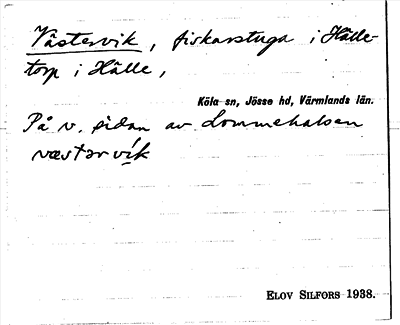 Västervik, fiskarstuga i Hälle-
torp i Hälle,
Köla sn, Jösse hd, Värmlands län.
På v. sidan av Lommehalsen
væstərvik
ELOV SILFORS 1938.